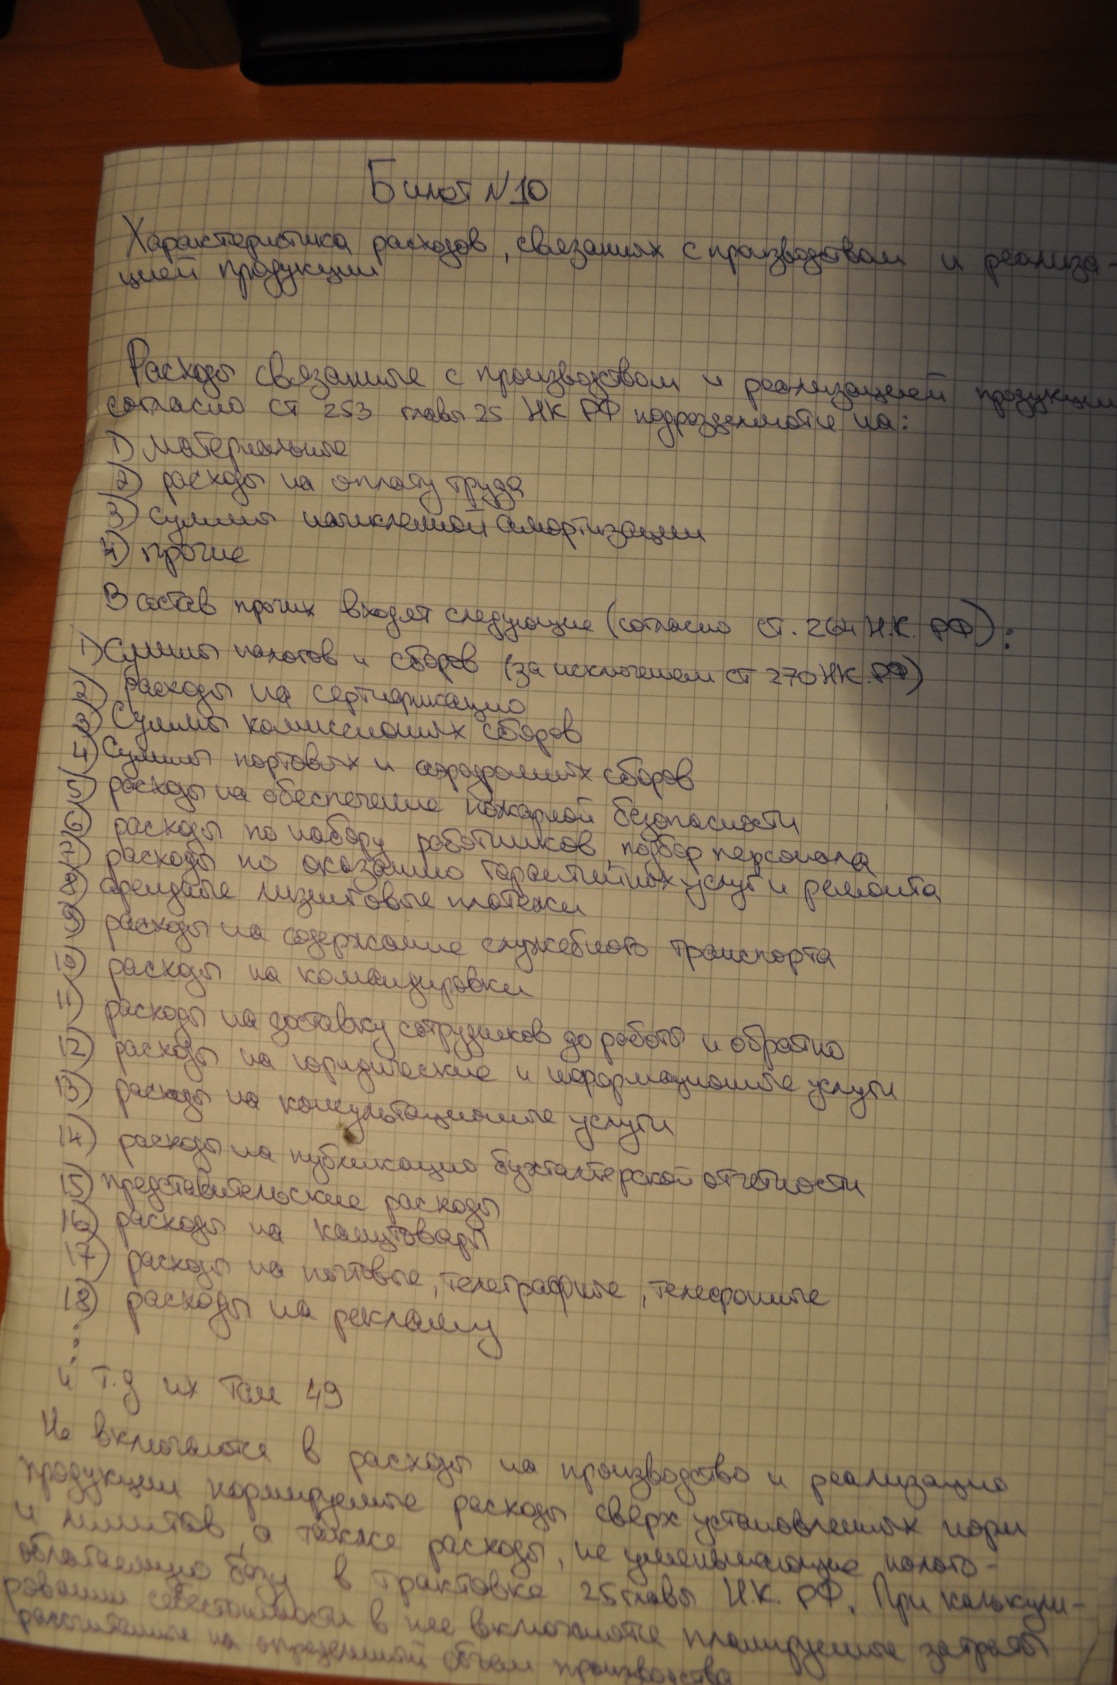 Билет №10
Характеристика расходов, связаных с производством и реализа-
цией продукции
Расходы связанные с производством и реализацией продукции
согласно ст 253 главы 25 НК РФ подразделяются на:
1) материальные
2) расходы на оплату труда
3) суммы начисленной амортизации
4) прочие
В состав прочих входят следующие (согласно ст. 264 Н.К. РФ):
1) Суммы налогов и сборов (за исключением ст 270 НК. РФ)
2) расходы на сертификацию
3) Суммы комиссионых сборов
4) Суммы портовых и аэродромных сборов
5) расходы на обеспечение пожарной безопасности
6) расходы по набору работников, подбор персонала
7) расходы по оказанию гарантийных услуг и ремонта
8) арендные лизинговые платежи
9) расходы на содержание служебного транспорта
10) расходы на командировки
11) расходы на доставку сотрудников до работы и обратно
12) расходы на юридические и информационные услуги
13) расходы на консультационные услуги
14) расходы на публикацию бухгалтерской отчетности
15) представительские расходы
16) расходы на канцтовары
17) расходы на почтовые, телеграфные, телефонные
18) расходы на рекламу
и т.д их там 49
Не включаются в расходы на производство и реализацию
продукции нормируемые расходы сверх установленных норм
и лимитов, а также расходы, не уменьшающие налого-
облагаемую базу в трактовке 25 главы Н.К. РФ. При калькули-
ровании себестоимости в нее включаются планируемые затраты
рассчитанные на определенный объем производства